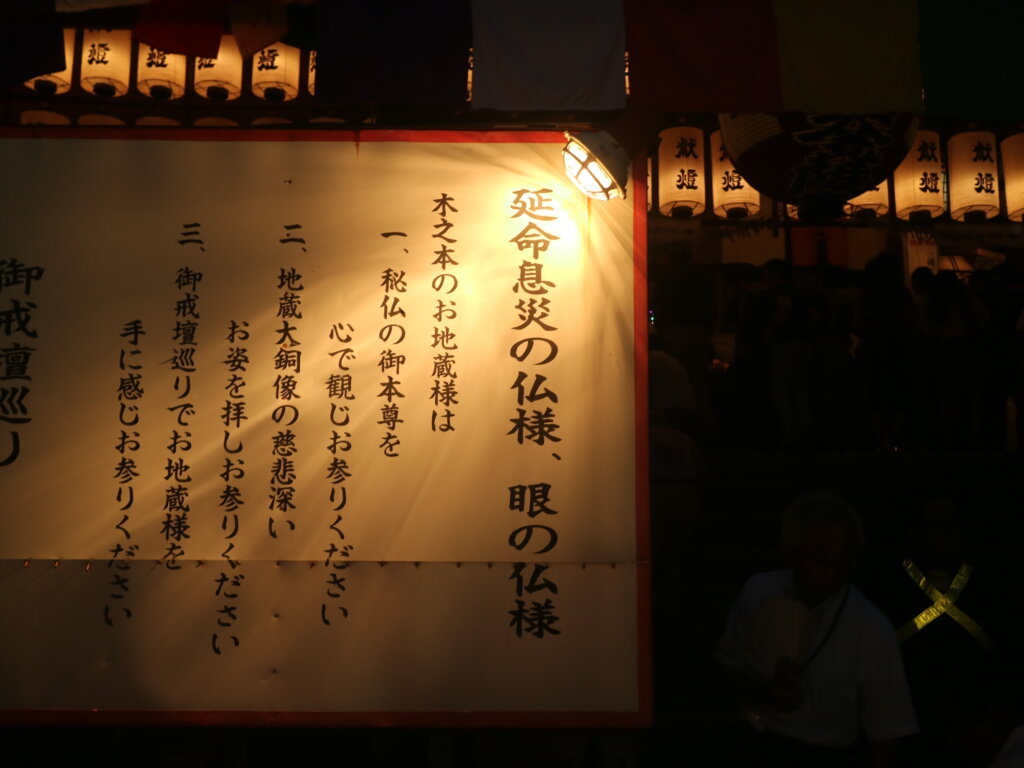 延命息災の仏様、眼の仏様
木之本のお地蔵様は
一、秘仏の御本尊を
心で観じお参りください
二、地蔵大銅像の慈悲深い
お姿を拝しお参りください
三、御戒壇巡りでお地蔵様を
手に感じお参りください
御戒壇巡り
献燈
献燈
献燈
献燈